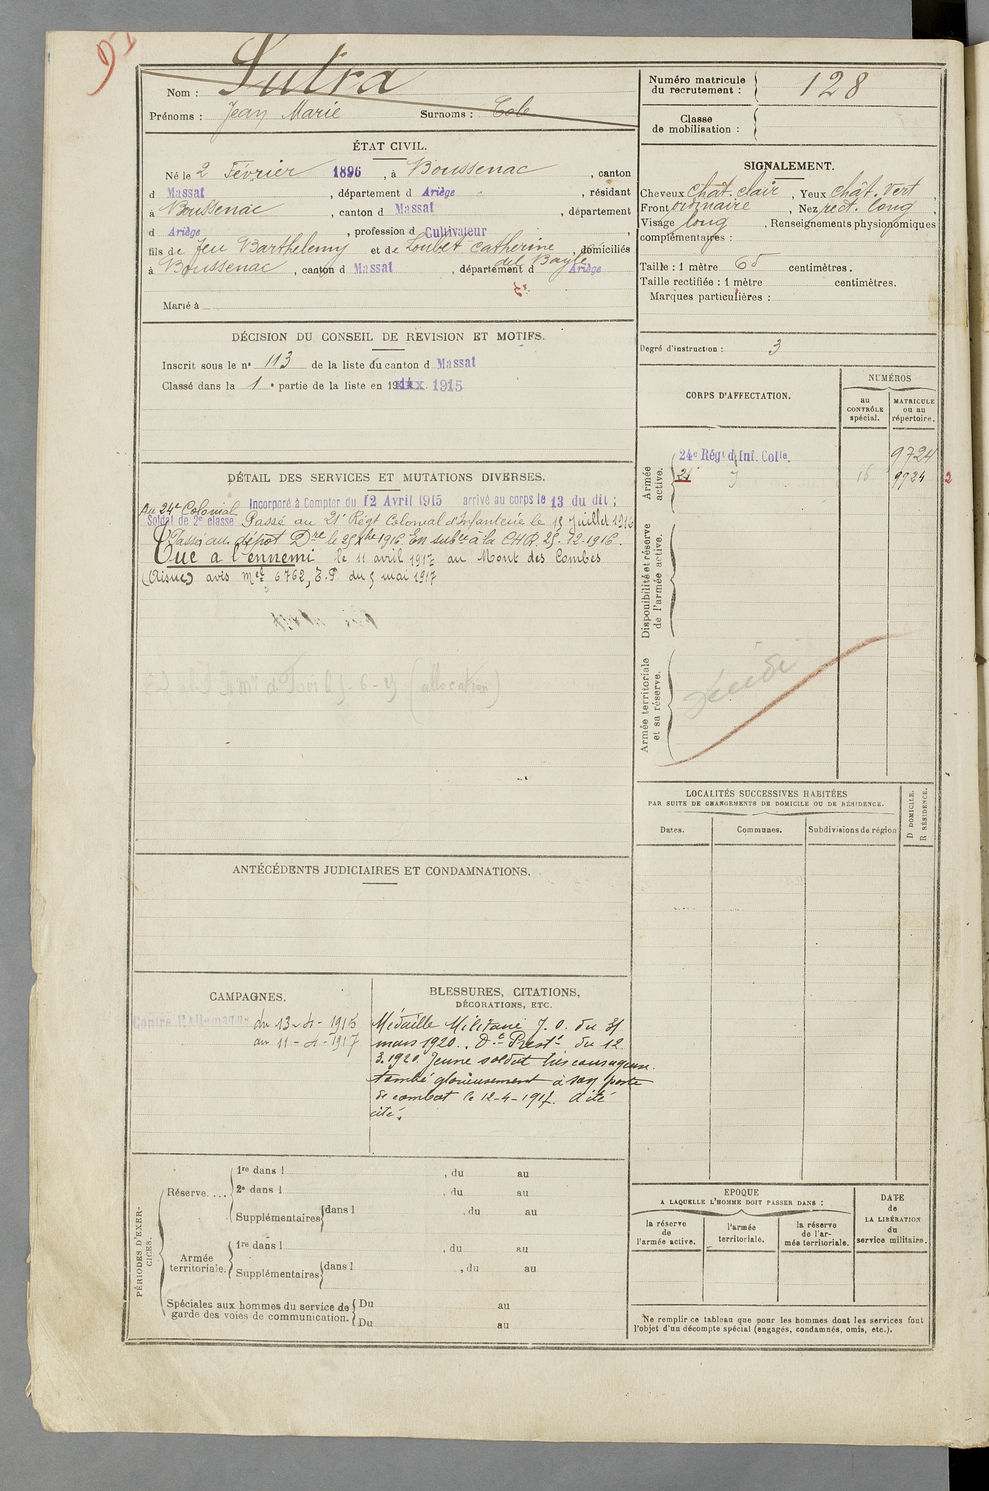 Nom : Sutra
Prénoms : Jean Marie Surnoms : Cole
Numéro matricule du recrutement : 128
Classe de mobilisation :
ÉTAT CIVIL.
Né le 2 Février 1896, à Boussenac, canton
d Massat, département d Ariège, résidant
à Boussenac, canton d Massat, département
d Ariège, profession d Cultivateur,
fils de feu Barthelemy et de Loubet Catherine, domiciliés
del Bayle
à Boussenac, canton d Massat, département d Ariège
Marié à
SIGNALEMENT.
Cheveux chât. clair, Yeux chât. vert
Front ordinaire, Nez rect. long,
Visage long, Renseignements physionomiques
complémentaires :
Taille : 1 mètre 65 centimètres.
Taille rectifiée : 1 mètre centimètres.
Marques particulières :
Degré d'instruction : 3
DÉCISION DU CONSEIL DE REVISION ET MOTIFS.
Inscrit sous le n° 113 de la liste du canton d Massat
Classé dans la 1e partie de la liste en 1915
CORPS D'AFFECTATION.
NUMÉROS
au CONTRÔLE spécial.
MATRICULE ou au répertoire.
Armée active.
24e Régt d'Inf. Colle. 9724
21 d 16 9724 2
Disponibilité et réserve de l'armée active.
Armée territoriale et sa réserve.
DÉTAIL DES SERVICES ET MUTATIONS DIVERSES.
Au 24e Colonial Incorporé à Compter du 12 Avril 1915 arrivé au corps le 13 du dit ;
Soldat de 2e classe Passé au 21e Régt Colonial d'Infanterie le 15 Juillet 1916
Passé au dépôt Dre le 25 1916. En subce à la CHR 25-12-1916.
Tué à l'ennemi le 11 avril 1917 au Mont des Combes
(Aisne) avis mel 6762, E.P du 5 mai 1917
(allocation)
LOCALITÉS SUCCESSIVES HABITÉES
PAR SUITE DE CHANGEMENTS DE DOMICILE OU DE RÉSIDENCE.
Dates. Communes. Subdivisions de région
D DOMICILE.
R RÉSIDENCE.
ANTÉCÉDENTS JUDICIAIRES ET CONDAMNATIONS.
CAMPAGNES.
Contre l'Allemagne du 13-4-1915
au 11-4-1917
BLESSURES, CITATIONS,
DÉCORATIONS, ETC.
Médaille Militaire J.O. du 31
mars 1920. du 12
3.1920. Jeune soldat très courageux.
tombé glorieusement à son poste
de combat le 12-4-1917. a été
cité.
PÉRIODES D'EXERCICES.
Réserve....
1re dans l , du au
2e dans l , du au
Supplémentaires dans l , du au
Armée territoriale.
1re dans l , du au
Supplémentaires dans l , du au
Spéciales aux hommes du service de garde des voies de communication.
Du au
Du au
EPOQUE
A LAQUELLE L'HOMME DOIT PASSER DANS :
la réserve de l'armée active.
l'armée territoriale.
la réserve de l'armée territoriale.
DATE de LA LIBÉRATION du service militaire.
Ne remplir ce tableau que pour les hommes dont les services font
l'objet d'un décompte spécial (engagés, condamnés, omis, etc.).